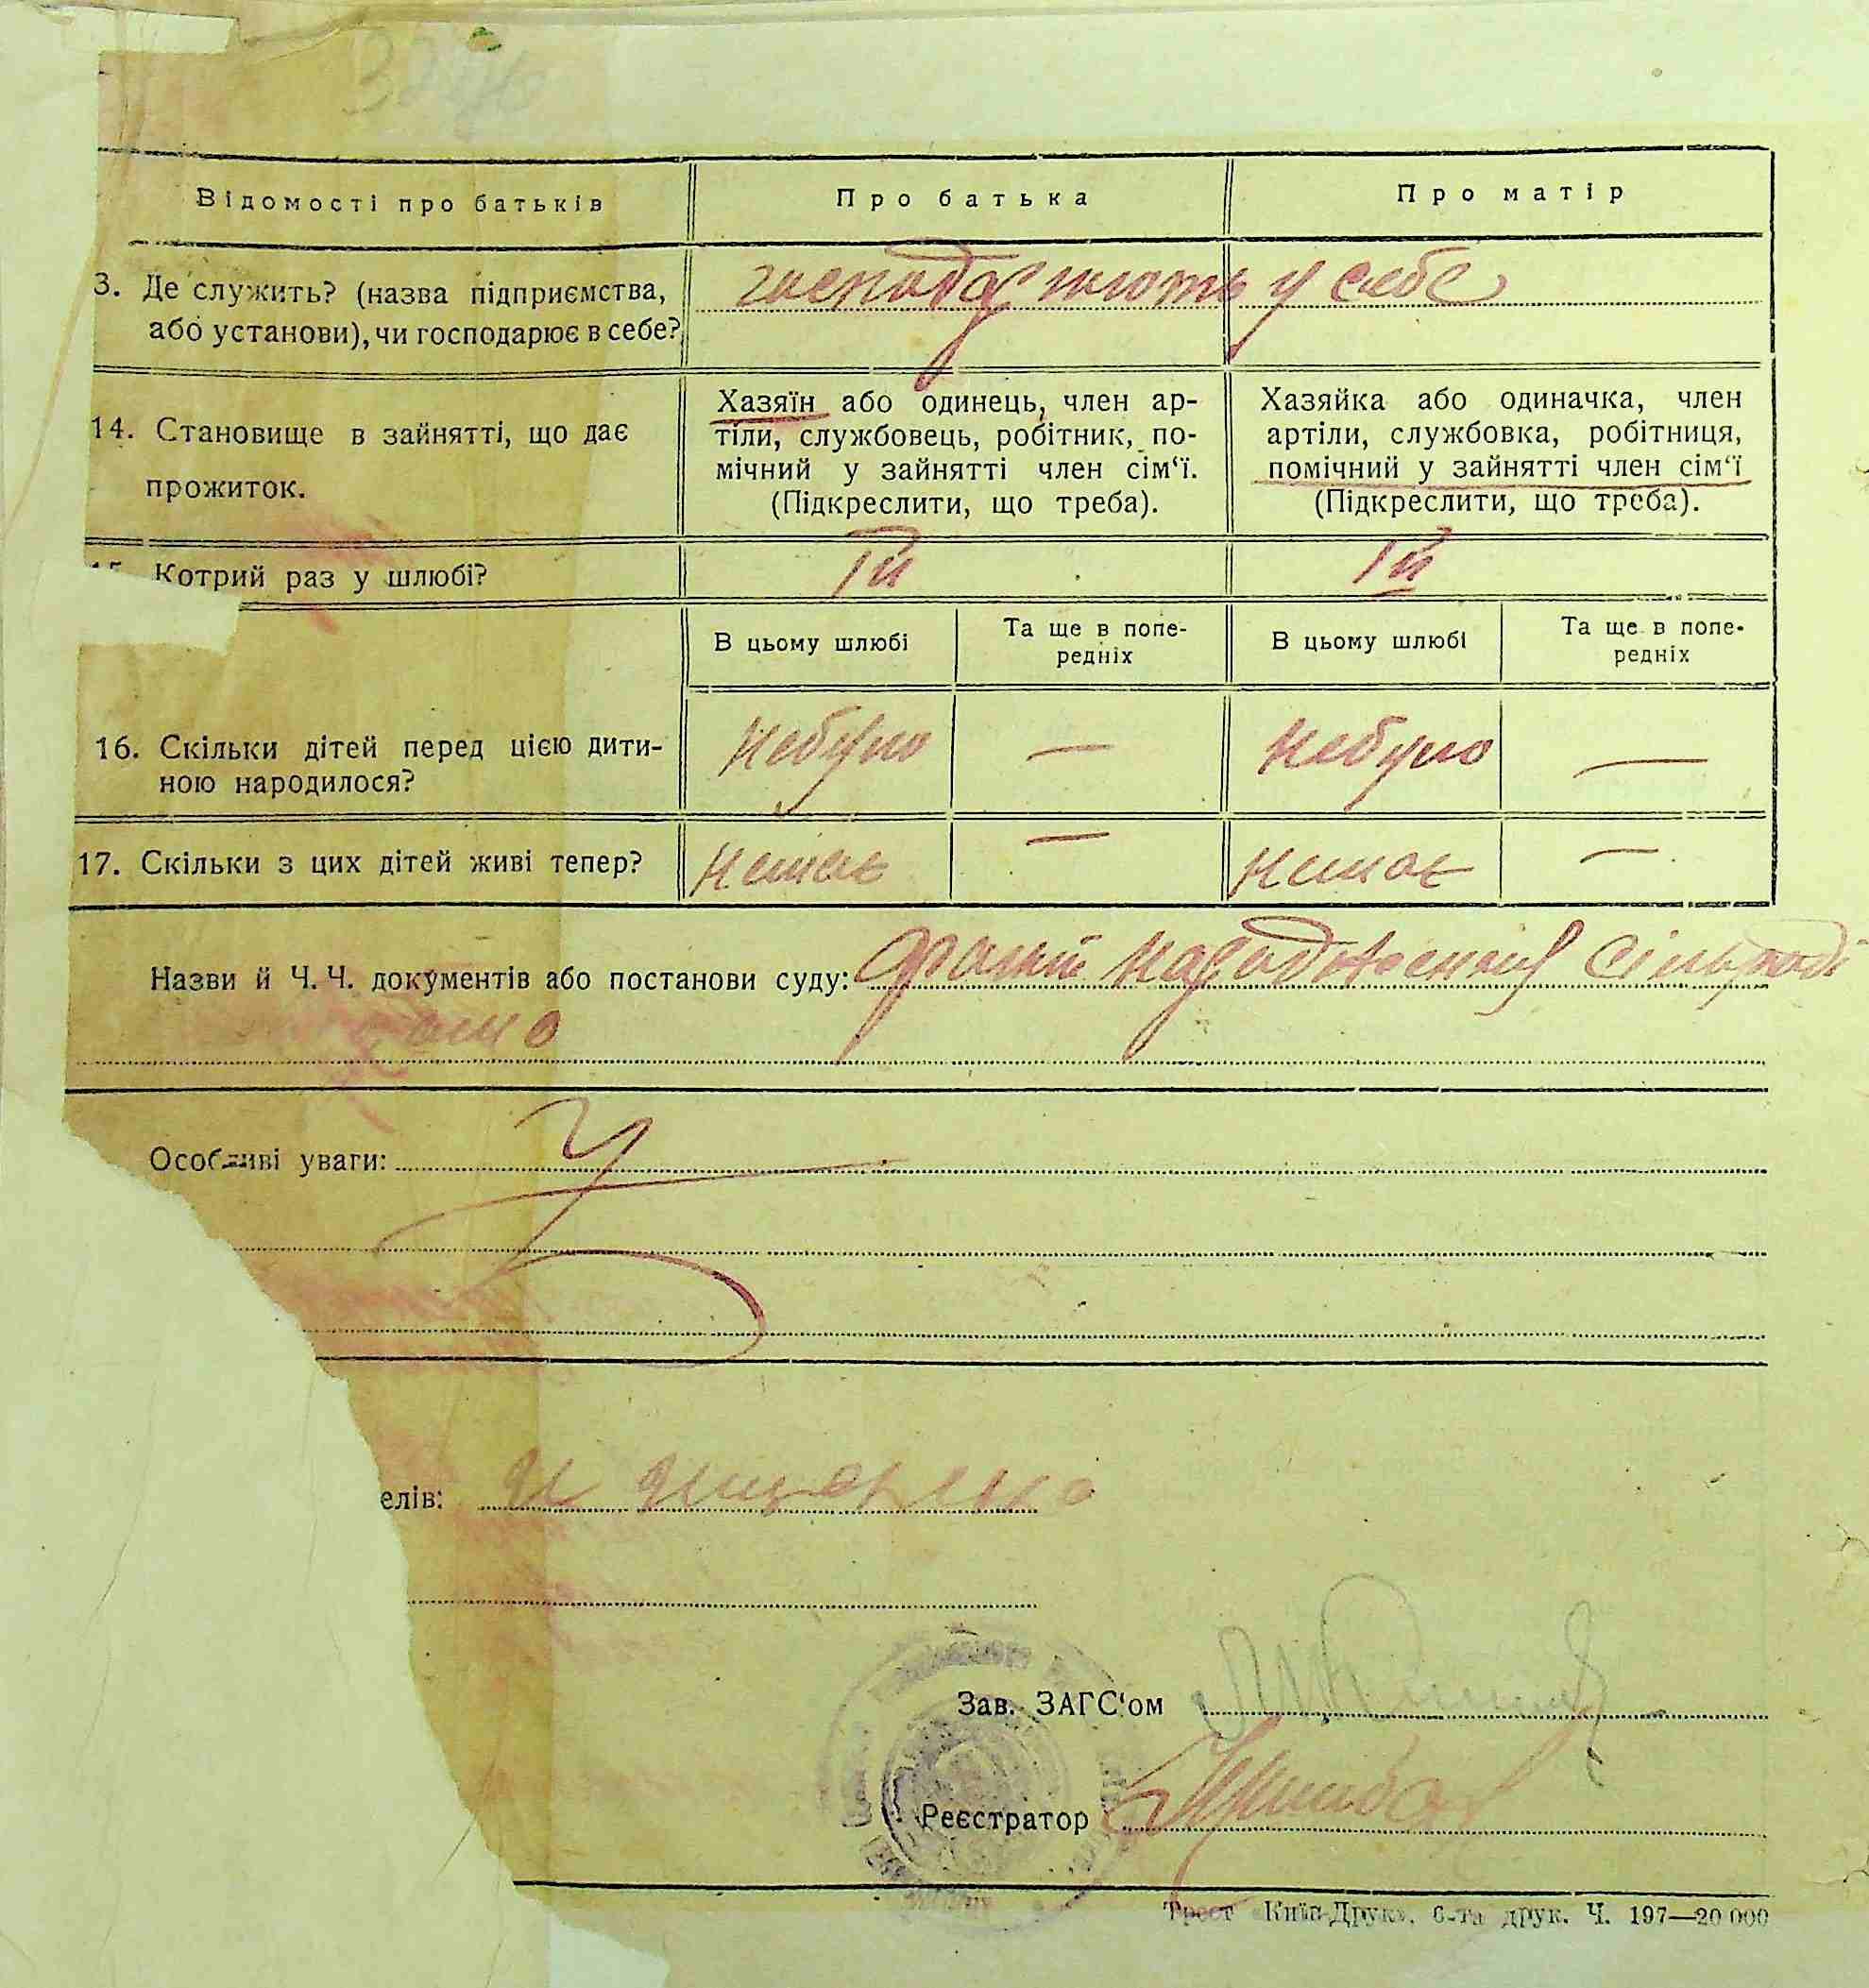 Відомості про батьків
Про батька
Про матір
3. Де служить? (назва підприємства,
або установи), чи господарює в себе?
господарюють у себе
14. Становище в зайнятті, що дає
прожиток.
Хазяїн або одинець, член ар-
тіли, службовець, робітник, по-
мічний у зайнятті член сім‘ї.
(Підкреслити, що треба).
Хазяйка або одиначка, член
артіли, службовка, робітниця,
помічний у зайнятті член сім‘ї
(Підкреслити, що треба).
Котрий раз у шлюбі?
Iй
Iй
В цьому шлюбі
Та ще в попе-
редніх
В цьому шлюбі
Та ще в попе-
редніх
16. Скільки дітей перед цією дити-
ною народилося?
небуло
—
небуло
—
17. Скільки з цих дітей живі тепер?
немає
—
немає
—
Назви й Ч. Ч. документів або постанови суду:
народження сільраді
Особливі уваги:
елів:
Зав. ЗАГС‘ом
Реєстратор
Трест «Київ-Друк», 6-та друк. Ч. 197—20 000